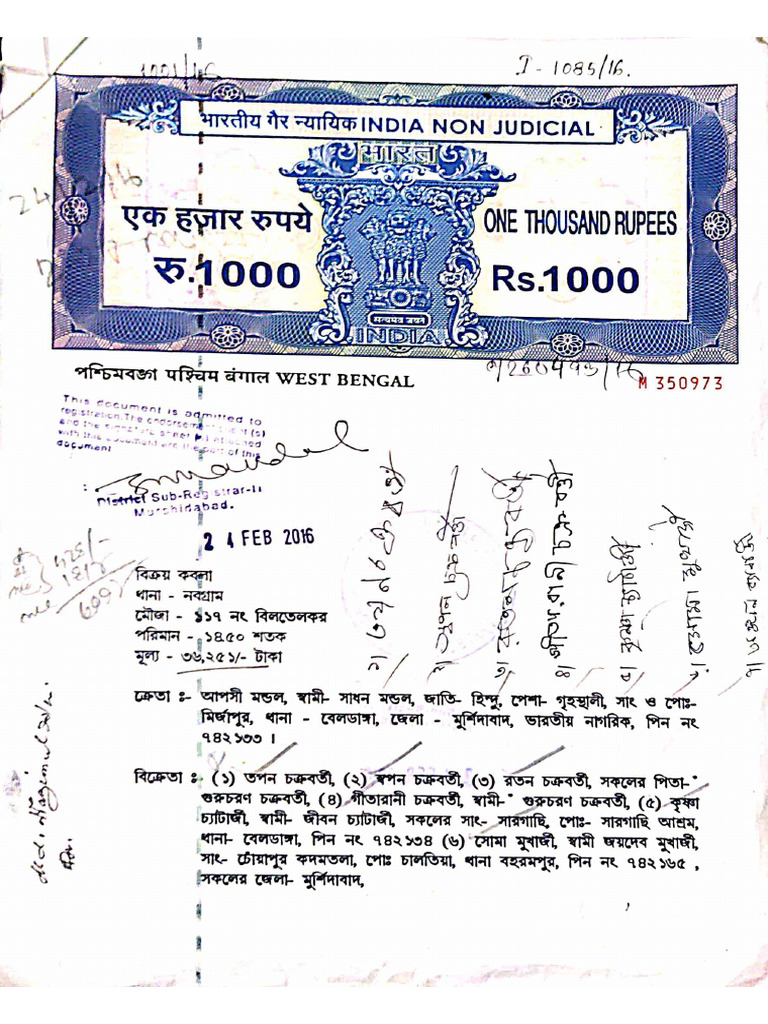 I - 1085/16.
भारतीय गैर न्यायिक INDIA NON JUDICIAL
भारत
एक हज़ार रुपये
ONE THOUSAND RUPEES
रु.1000
Rs.1000
सत्यमेव जयते
INDIA
পশ্চিমবঙ্গ पश्चिम बंगाल WEST BENGAL
M 350973
This document is admitted to
registration. The endorsement sheet (s)
and the signature sheet attached
with this document are the part of this
document
District Sub-Registrar-II
Murshidabad.
24 FEB 2016
বিক্রয় কবলা
থানা - নবগ্রাম
মৌজা - ১১৭ নং বিলতেলকর
পরিমান - ১৪৫০ শতক
মূল্য - ৩৬,২৫১/- টাকা
১) তপন চক্রবর্তী
২) স্বপন চক্রবর্তী
৩) রতন চক্রবর্তী
৪) গীতারানী চক্রবর্তী
৫) কৃষ্ণা চ্যাটার্জী
ক্রেতা ঃ- আপসী মন্ডল, স্বামী- সাধন মন্ডল, জাতি- হিন্দু, পেশা- গৃহস্থালী, সাং ও পোঃ-
মির্জাপুর, থানা - বেলডাঙ্গা, জেলা - মুর্শিদাবাদ, ভারতীয় নাগরিক, পিন নং
৭৪২১৩৩ ।
বিক্রেতা ঃ- (১) তপন চক্রবর্তী, (২) স্বপন চক্রবর্তী, (৩) রতন চক্রবর্তী, সকলের পিতা-
গুরুচরণ চক্রবর্তী, (৪) গীতারানী চক্রবর্তী, স্বামী- গুরুচরণ চক্রবর্তী, (৫) কৃষ্ণা
চ্যাটার্জী, স্বামী- জীবন চ্যাটার্জী, সকলের সাং- সারগাছি, পোঃ- সারগাছি আশ্রম,
থানা- বেলডাঙ্গা, পিন নং ৭৪২১৩৪ (৬) সোমা মুখার্জী, স্বামী জয়দেব মুখার্জী,
সাং- চোঁয়াপুর কদমতলা, পোঃ চালতিয়া, থানা বহরমপুর, পিন নং ৭৪২১৬৫ ,
সকলের জেলা- মুর্শিদাবাদ,